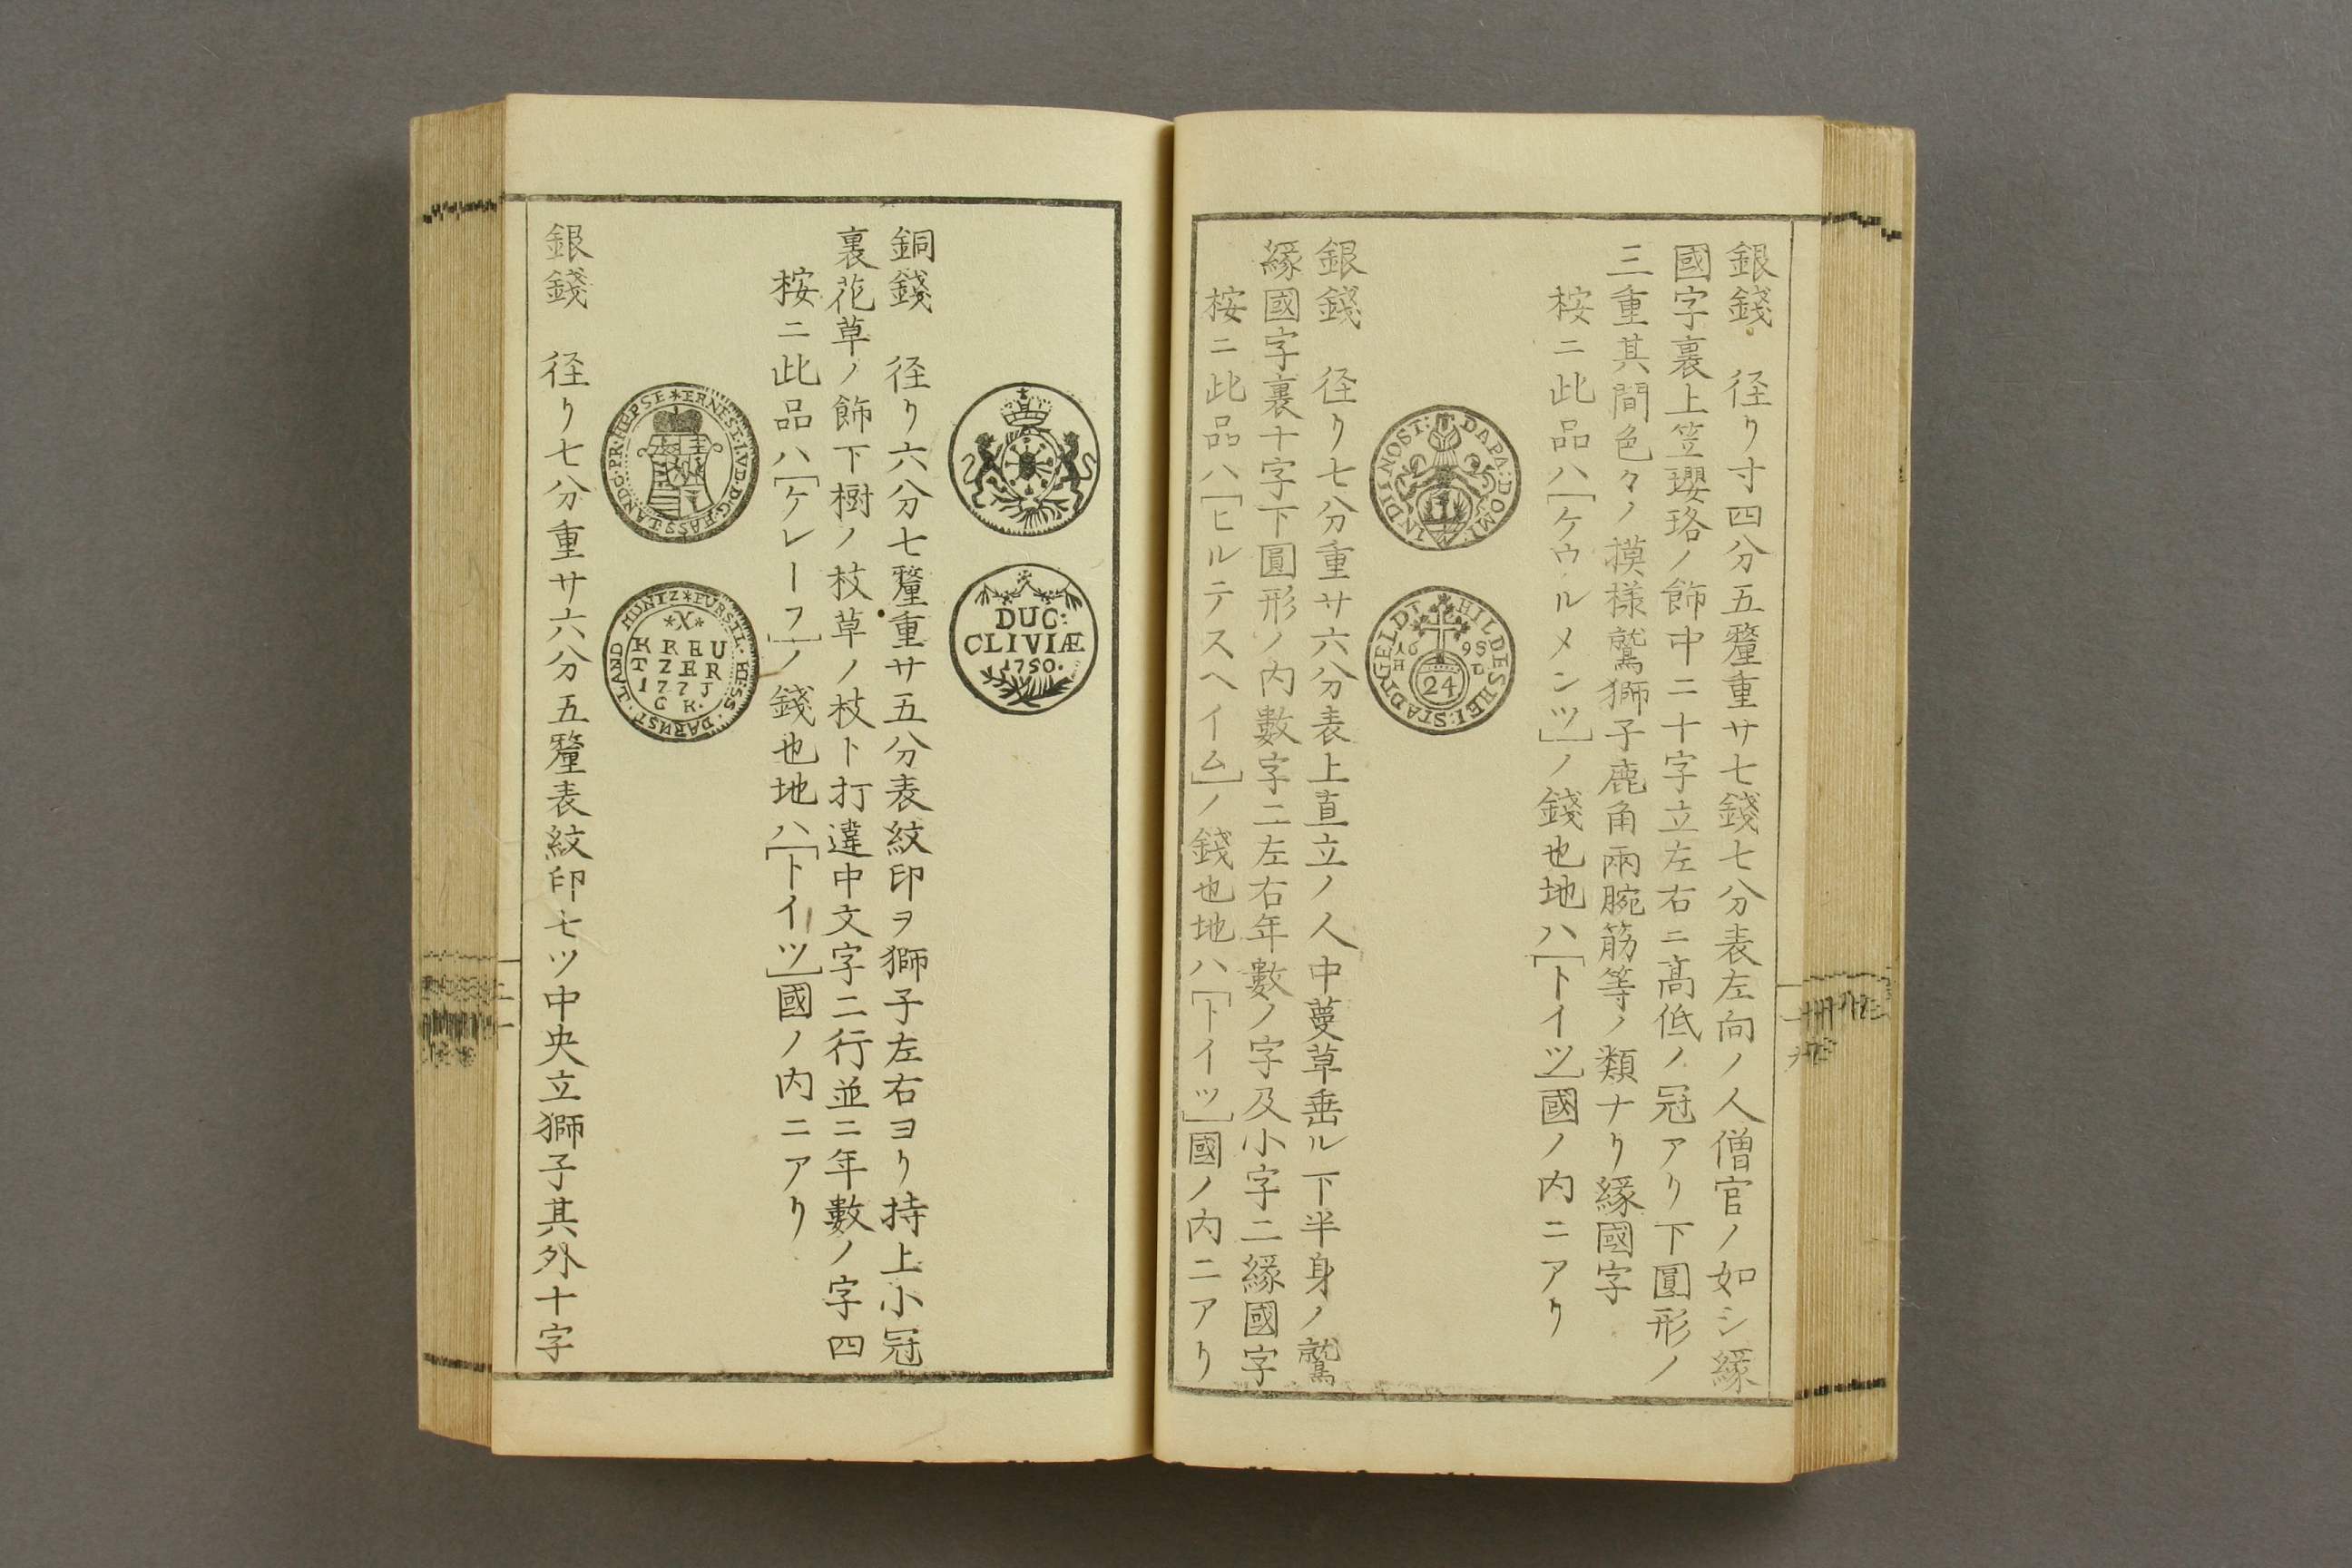 銀錢　径リ寸四分五釐重サ七錢七分表左向ノ人僧官ノ如シ緣
國字裏上笠瓔珞ノ飾中ニ十字立左右ニ高低ノ冠アリ下圓形ノ
三重其間色々ノ摸様鷲獅子鹿角兩腕筋等ノ類ナリ緣國字
桉ニ此品ハ[ケウルメンツ]ノ錢也地ハ[トイツ]國ノ内ニアリ
IN DI NOST: DA PA: DOMI:
HILDESHEI: STADTGELDT
16 98
H L
24
銀錢　径リ七分重サ六分表上直立ノ人中蔓草垂ル下半身ノ鷲
緣國字裏十字下圓形ノ内數字二左右年數ノ字及小字二緣國字
桉ニ此品ハ[ヒルテスヘイム]ノ錢也地ハ[トイツ]國ノ内ニアリ
DUC:
CLIVIÆ
1750.
銅錢　径リ六分七釐重サ五分表紋印ヲ獅子左右ヨリ持上小冠
裏花草ノ飾下樹ノ枝草ノ枝ト打違中文字二行並ニ年數ノ字四
桉ニ此品ハ[ケレーフ]ノ錢也地ハ[トイツ]國ノ内ニアリ
ERNEST·LVD·D·G·HASS·LANDG·PR·HEPSE
FURSTL·HESS·DARMST·LAND MUNTZ
*X*
KREU
TZER
177J
G K.
銀錢　径リ七分重サ六分五釐表紋印七ツ中央立獅子其外十字